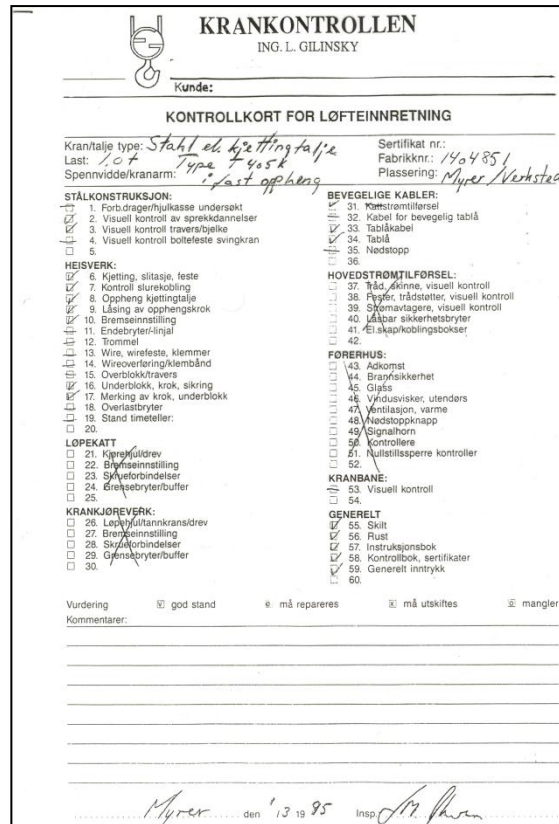 KRANKONTROLLEN
ING. L. GILINSKY
Kunde:
KONTROLLKORT FOR LØFTEINNRETNING
Kran/talje type: Stahl el. kjettingtalje
Last: 1.0 t Type T 405K
Spennvidde/kranarm: i fast oppheng
Sertifikat nr.:
Fabrikknr.: 1404851
Plassering: Myrer/Verksted
STÅLKONSTRUKSJON:
1. Forb.drager/hjulkasse undersøkt
2. Visuell kontroll av sprekkdannelser
3. Visuell kontroll travers/bjelke
4. Visuell kontroll boltefeste svingkran
5.
HEISVERK:
6. Kjetting, slitasje, feste
7. Kontroll slurekobling
8. Oppheng kjettingtalje
9. Låsing av opphengskrok
10. Bremseinnstilling
11. Endebryter/-linjal
12. Trommel
13. Wire, wirefeste, klemmer
14. Wireoverføring/klembånd
15. Overblokk/travers
16. Underblokk, krok, sikring
17. Merking av krok, underblokk
18. Overlastbryter
19. Stand timeteller:
20.
LØPEKATT
21. Kjørehjul/drev
22. Bremseinnstilling
23. Skrueforbindelser
24. Grensebryter/buffer
25.
KRANKJØREVERK:
26. Løpehjul/tannkrans/drev
27. Bremseinnstilling
28. Skrueforbindelser
29. Grensebryter/buffer
30.
BEVEGELIGE KABLER:
31. Kattstrømtilførsel
32. Kabel for bevegelig tablå
33. Tablåkabel
34. Tablå
35. Nødstopp
36.
HOVEDSTRØMTILFØRSEL:
37. Tråd, skinne, visuell kontroll
38. Fester, trådstøtter, visuell kontroll
39. Strømavtagere, visuell kontroll
40. Låsbar sikkerhetsbryter
41. El.skap/koblingsbokser
42.
FØRERHUS:
43. Adkomst
44. Brannsikkerhet
45. Glass
46. Vindusvisker, utendørs
47. Ventilasjon, varme
48. Nødstoppknapp
49. Signalhorn
50. Kontrollere
51. Nullstillssperre kontroller
52.
KRANBANE:
53. Visuell kontroll
54.
GENERELT
55. Skilt
56. Rust
57. Instruksjonsbok
58. Kontrollbok, sertifikater
59. Generelt inntrykk
60.
Vurdering V god stand må repareres må utskiftes mangler
Kommentarer:
Myrer den 1/3 1985 Insp.